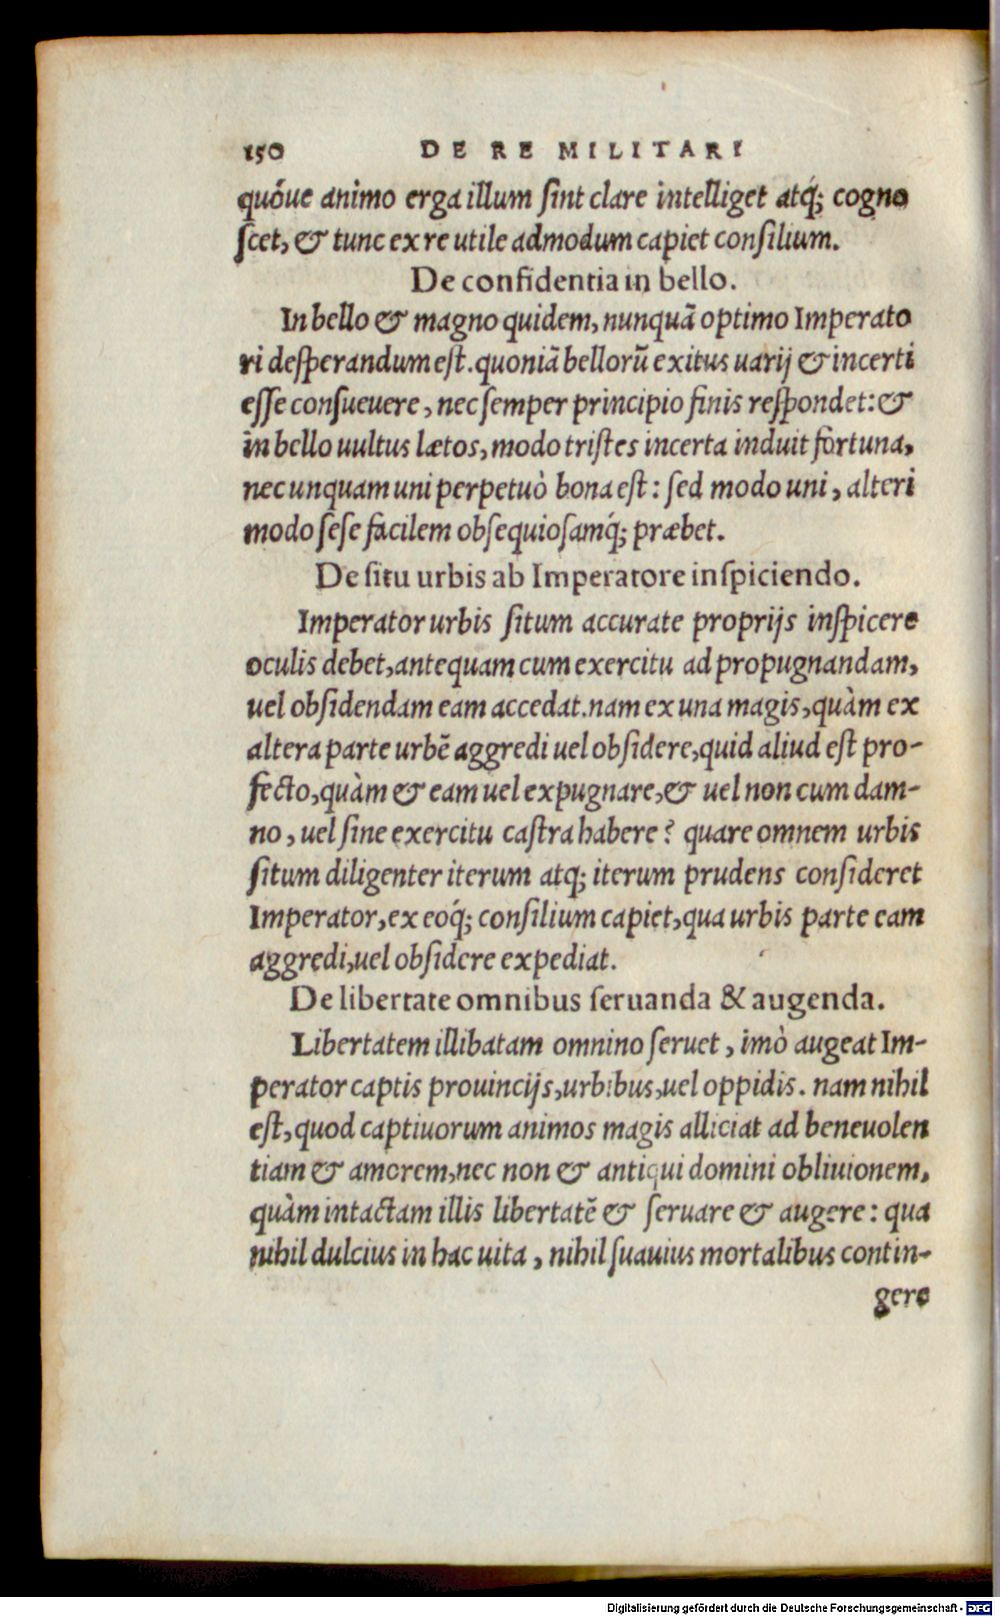 150 DE RE MILITARI
quóue animo erga illum ſint clare intelliget atq́; cogno
ſcet, & tunc ex re utile admodum capiet conſilium.
De confidentia in bello.
In bello & magno quidem, nunquã optimo Imperato
ri deſperandum eſt. quoniã bellorũ exitus uarij & incerti
eſſe conſueuere, nec ſemper principio finis reſpondet: &
in bello uultus lætos, modo triſtes incerta induit fortuna,
nec unquam uni perpetuò bona eſt: ſed modo uni, alteri
modo ſeſe facilem obſequioſamq́; præbet.
De ſitu urbis ab Imperatore inſpiciendo.
Imperator urbis ſitum accurate proprijs inſpicere
oculis debet, antequam cum exercitu ad propugnandam,
uel obſidendam eam accedat. nam ex una magis, quàm ex
altera parte urbẽ aggredi uel obſidere, quid aliud eſt pro-
fecto, quàm & eam uel expugnare, & uel non cum dam-
no, uel ſine exercitu caſtra habere? quare omnem urbis
ſitum diligenter iterum atq; iterum prudens conſideret
Imperator, ex eoq́; conſilium capiet, qua urbis parte eam
aggredi, uel obſidere expediat.
De libertate omnibus ſeruanda & augenda.
Libertatem illibatam omnino ſeruet, imò augeat Im-
perator captis prouincijs, urbibus, uel oppidis. nam nihil
eſt, quod captiuorum animos magis alliciat ad beneuolen
tiam & amorem, nec non & antiqui domini obliuionem,
quàm intactam illis libertatẽ & ſeruare & augere: qua
nihil dulcius in hac uita, nihil ſuauius mortalibus contin-
gere
Digitalisierung gefördert durch die Deutsche Forschungsgemeinschaft - DFG